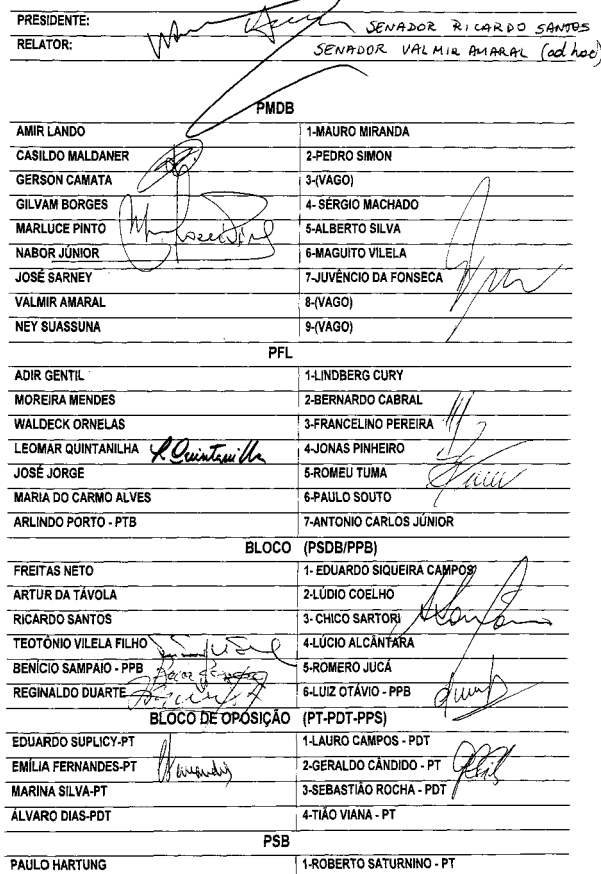 PRESIDENTE: SENADOR RICARDO SANTOS
RELATOR: SENADOR VALMIR AMARAL (ad hoc)
PMDB
AMIR LANDO 1-MAURO MIRANDA
CASILDO MALDANER 2-PEDRO SIMON
GERSON CAMATA 3-(VAGO)
GILVAM BORGES 4- SÉRGIO MACHADO
MARLUCE PINTO 5-ALBERTO SILVA
NABOR JÚNIOR 6-MAGUITO VILELA
JOSÉ SARNEY 7-JUVÊNCIO DA FONSECA
VALMIR AMARAL 8-(VAGO)
NEY SUASSUNA 9-(VAGO)
PFL
ADIR GENTIL 1-LINDBERG CURY
MOREIRA MENDES 2-BERNARDO CABRAL
WALDECK ORNELAS 3-FRANCELINO PEREIRA
LEOMAR QUINTANILHA L. Quintanilha 4-JONAS PINHEIRO
JOSÉ JORGE 5-ROMEU TUMA
MARIA DO CARMO ALVES 6-PAULO SOUTO
ARLINDO PORTO - PTB 7-ANTONIO CARLOS JÚNIOR
BLOCO (PSDB/PPB)
FREITAS NETO 1- EDUARDO SIQUEIRA CAMPOS
ARTUR DA TÁVOLA 2-LÚDIO COELHO
RICARDO SANTOS 3- CHICO SARTORI
TEOTÔNIO VILELA FILHO 4-LÚCIO ALCÂNTARA
BENÍCIO SAMPAIO - PPB 5-ROMERO JUCÁ
REGINALDO DUARTE 6-LUIZ OTÁVIO - PPB
BLOCO DE OPOSIÇÃO (PT-PDT-PPS)
EDUARDO SUPLICY-PT 1-LAURO CAMPOS - PDT
EMÍLIA FERNANDES-PT 2-GERALDO CÂNDIDO - PT
MARINA SILVA-PT 3-SEBASTIÃO ROCHA - PDT
ÁLVARO DIAS-PDT 4-TIÃO VIANA - PT
PSB
PAULO HARTUNG 1-ROBERTO SATURNINO - PT